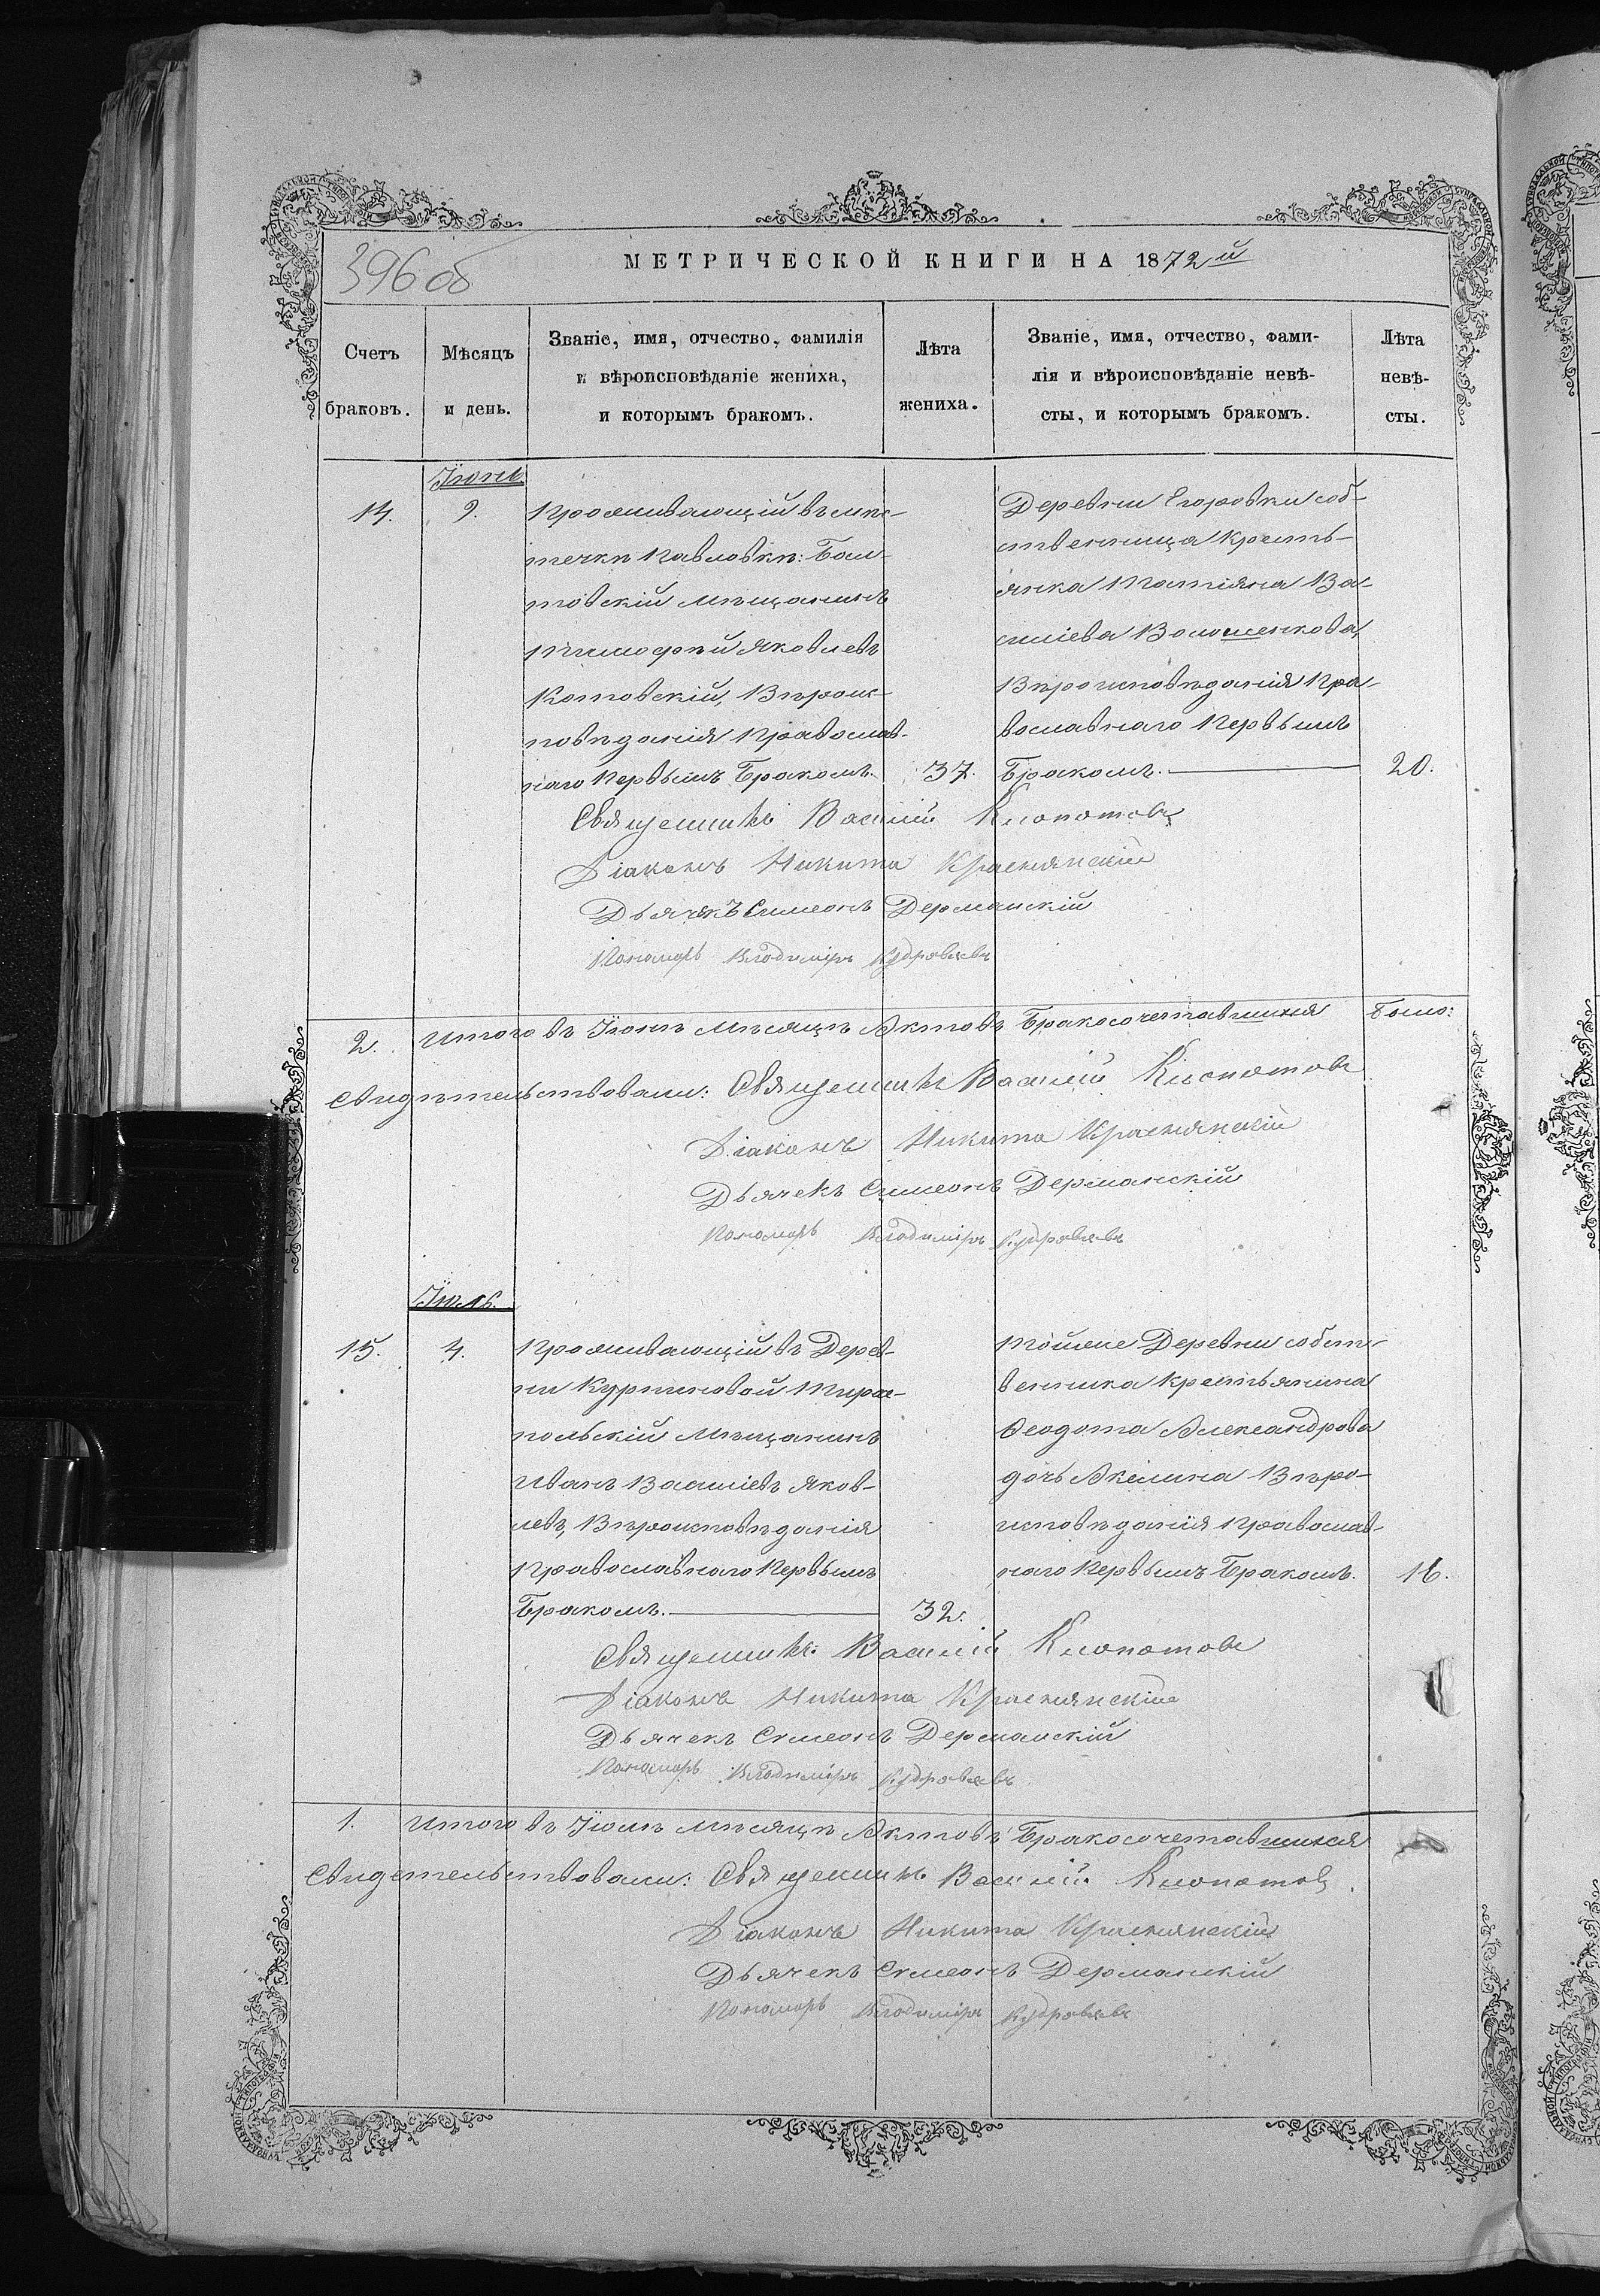 396 об
МЕТРИЧЕСКОЙ КНИГИ НА 1872й
Счетъ браковъ.
Мѣсяцъ и день.
Званіе, имя, отчество, фамилія
и вѣроисповѣданіе жениха,
и которымъ бракомъ.
Лѣта
жениха.
Званіе, имя, отчество, фами-
лія и вѣроисповѣданіе невѣ-
сты, и которымъ бракомъ.
Лѣта
невѣ-
сты.
Іюнь
14.
9.
Проживающій въ мѣс-
течкѣ Павловкѣ: Бал-
товскій мѣщанинъ
Тимофѣй Яковлевъ
Котовскій, Вѣроис-
повѣданія Православ-
наго Первымъ Бракомъ.
37.
Деревни Егоровки соб-
ственница Кресть-
янка Татіяна Ва-
силіева Волошенкова,
Вѣроисповѣданія Пра-
вославнаго Первымъ
Бракомъ.
20.
Священникъ Василій Клопотовъ
Діаконъ Никита Краснянскій
Дьячекъ Симеонъ Дерманскій
Пономарь Владиміръ Кудрявцевъ
2. Итого въ Іюнѣ мѣсяцѣ Актовъ Бракосочетавшихся было:
Свидѣтельствовали: Священникъ Василій Клопотовъ
Діаконъ Никита Краснянскій
Дьячекъ Симеонъ Дерманскій
Пономарь Владиміръ Кудрявцевъ
Іюль.
15.
4.
Проживающій въ Дерев-
ни Куртиновой Тирас-
польскій Мѣщанинъ
Иванъ Василіевъ Яков-
левъ, Вѣроисповѣданія
Православнаго Первымъ
Бракомъ.
32.
Тойже Деревни собст-
венника Крестьянина
Феодота Александрова
дочь Акилина Вѣро-
исповѣданія Православ-
наго Первымъ Бракомъ.
16.
Священникъ Василій Клопотовъ
Діаконъ Никита Краснянскій
Дьячекъ Симеонъ Дерманскій
Пономарь Владиміръ Кудрявцевъ
1. Итого въ Іюлѣ мѣсяцѣ Актовъ Бракосочетавшихся
Свидетельствовали: Священникъ Василій Клопотовъ
Діаконъ Никита Краснянскій
Дьячекъ Симеонъ Дерманскій
Пономарь Владиміръ Кудрявцевъ